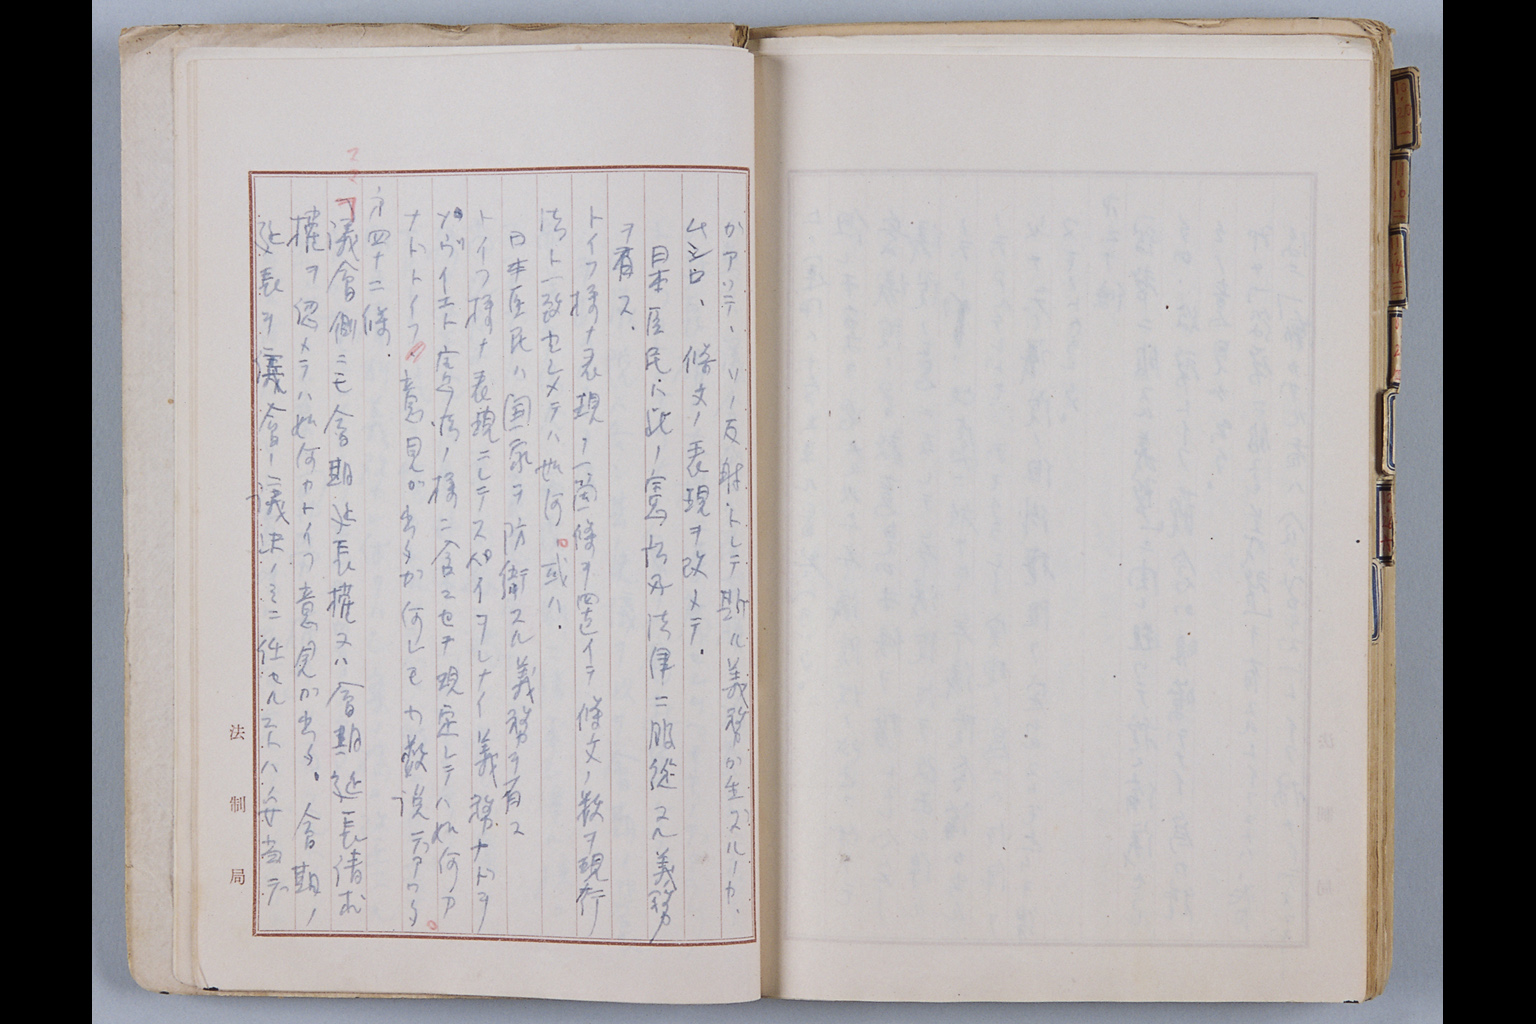 ガアツテ、ソノ反射トシテ斯ル義務ガ生ズルノカ、
ムシロ、條文ノ表現ヲ改メテ、
日本臣民ハ此ノ憲法及法律ニ服從スル義務
ヲ有ス、
トイフ様ナ表現ノ一箇條ヲ置イテ條文ノ数ヲ現行
法ト一致セシメテハ如何。或ハ、
日本臣民ハ国家ヲ防衛スル義務ヲ有ス
トイフ様ナ表現ニシテスペイヲシナイ義務ナドヲ
ソヴイエト憲法ノ様ニ含マセテ規定シテハ如何カ
ナドトイフ意見ガ出タガ何レモ少数説デアツタ。
第四十二條
議會側ニモ會期延長権又ハ會期延長請求
権ヲ認メテハ如何カトイフ意見ガ出タ。會期ノ
延長ヲ議會ノ議決ノミニ任セルコトハ妥当デ
法制局